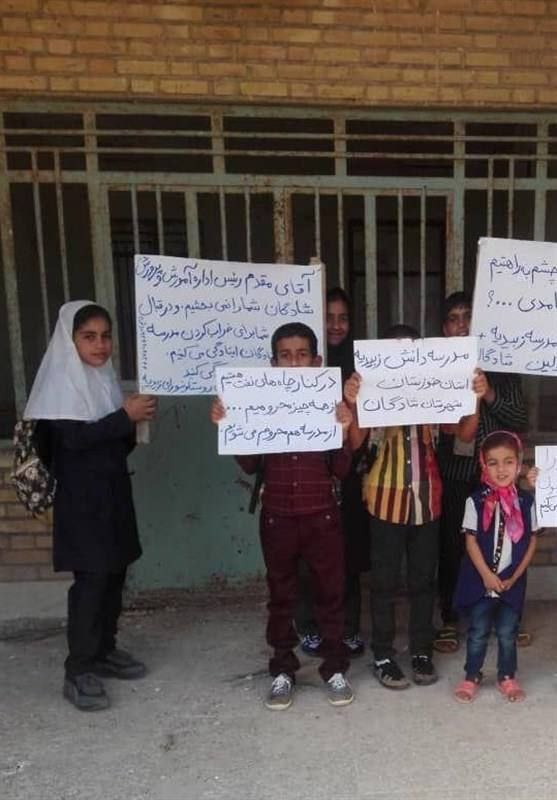 آقای مقدم رئیس اداره آموزش و پرورش
شادگان شما را نمی بخشیم. و در قبال
شما برای خراب کردن مدرسه
شادگان ایستادگی می کنیم.
روستای شورای زبیدیه
در کنار چاه های نفت هستیم
از همه چیز محرومیم ...
از مدرسه هم محروم می شویم.
مدرسه دانش زبیدیه
استان خوزستان
شهرستان شادگان
چشم به راهتیم
آمدی ...؟
مدرسه زبیدیه +
شادگان
را